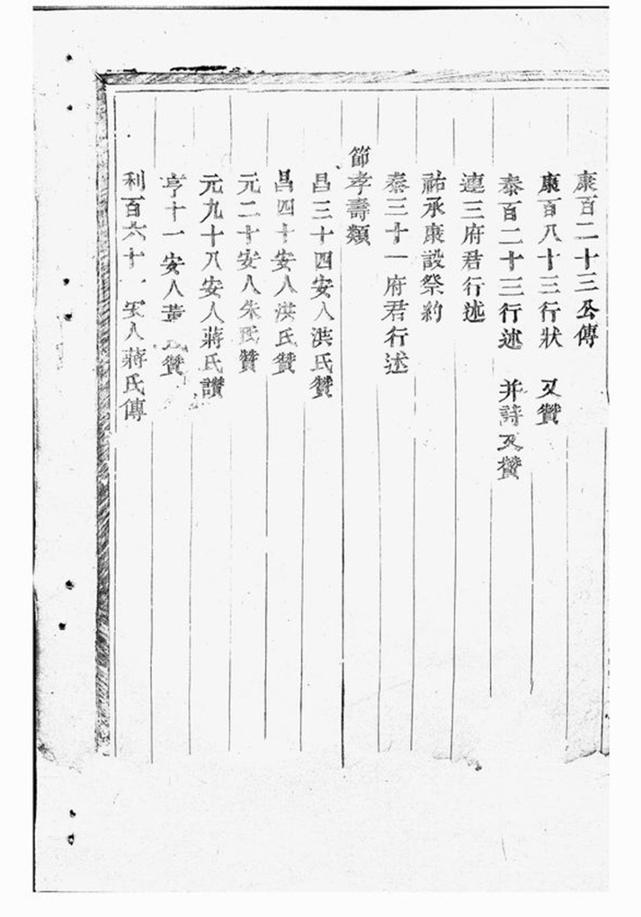 康百二十三公傳
康百八十三行狀 又贊
泰百二十三行述 并詩又贊
連三府君行述
祐承康設祭約
泰三十一府君行述
節孝壽類
昌三十四安人洪氏贊
昌四十安人洪氏贊
元二十安人朱氏贊
元九十八安人蔣氏讚
亨十一安人黃氏贊
利百六十一安人蔣氏傳